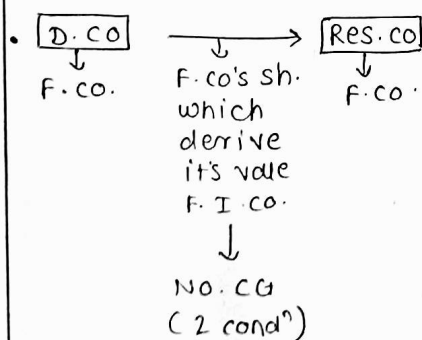 D. CO
Res. CO
F. CO.
F. CO's sh.
which
derive
it's vale
F. I. CO.
F. CO.
NO. CG
(2 condⁿ)